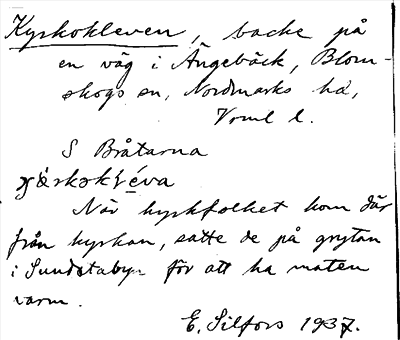 Kyrkokleven, backe på
en väg i Ängebäck, Blom-
skogs sn, Nordmarks hd,
Vrml l.
S Bråtarna
När kyrkfolket kom där
från kyrkan, satte de på grytan
i Sundstabyn för att ha maten
varm.
E. Silfors 1937.